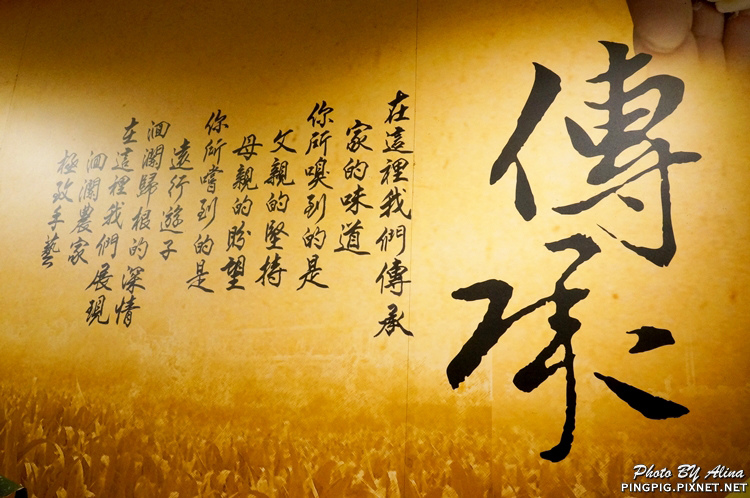 傳承
在這裡我們傳承
家的味道
你所嗅到的是
父親的堅持
母親的盼望
你所嚐到的是
遠行遊子
洄瀾歸根的深情
在這裡我們展現
洄瀾農家
極致手藝
Photo BY Alina
PINGPIG.PIXNET.NET